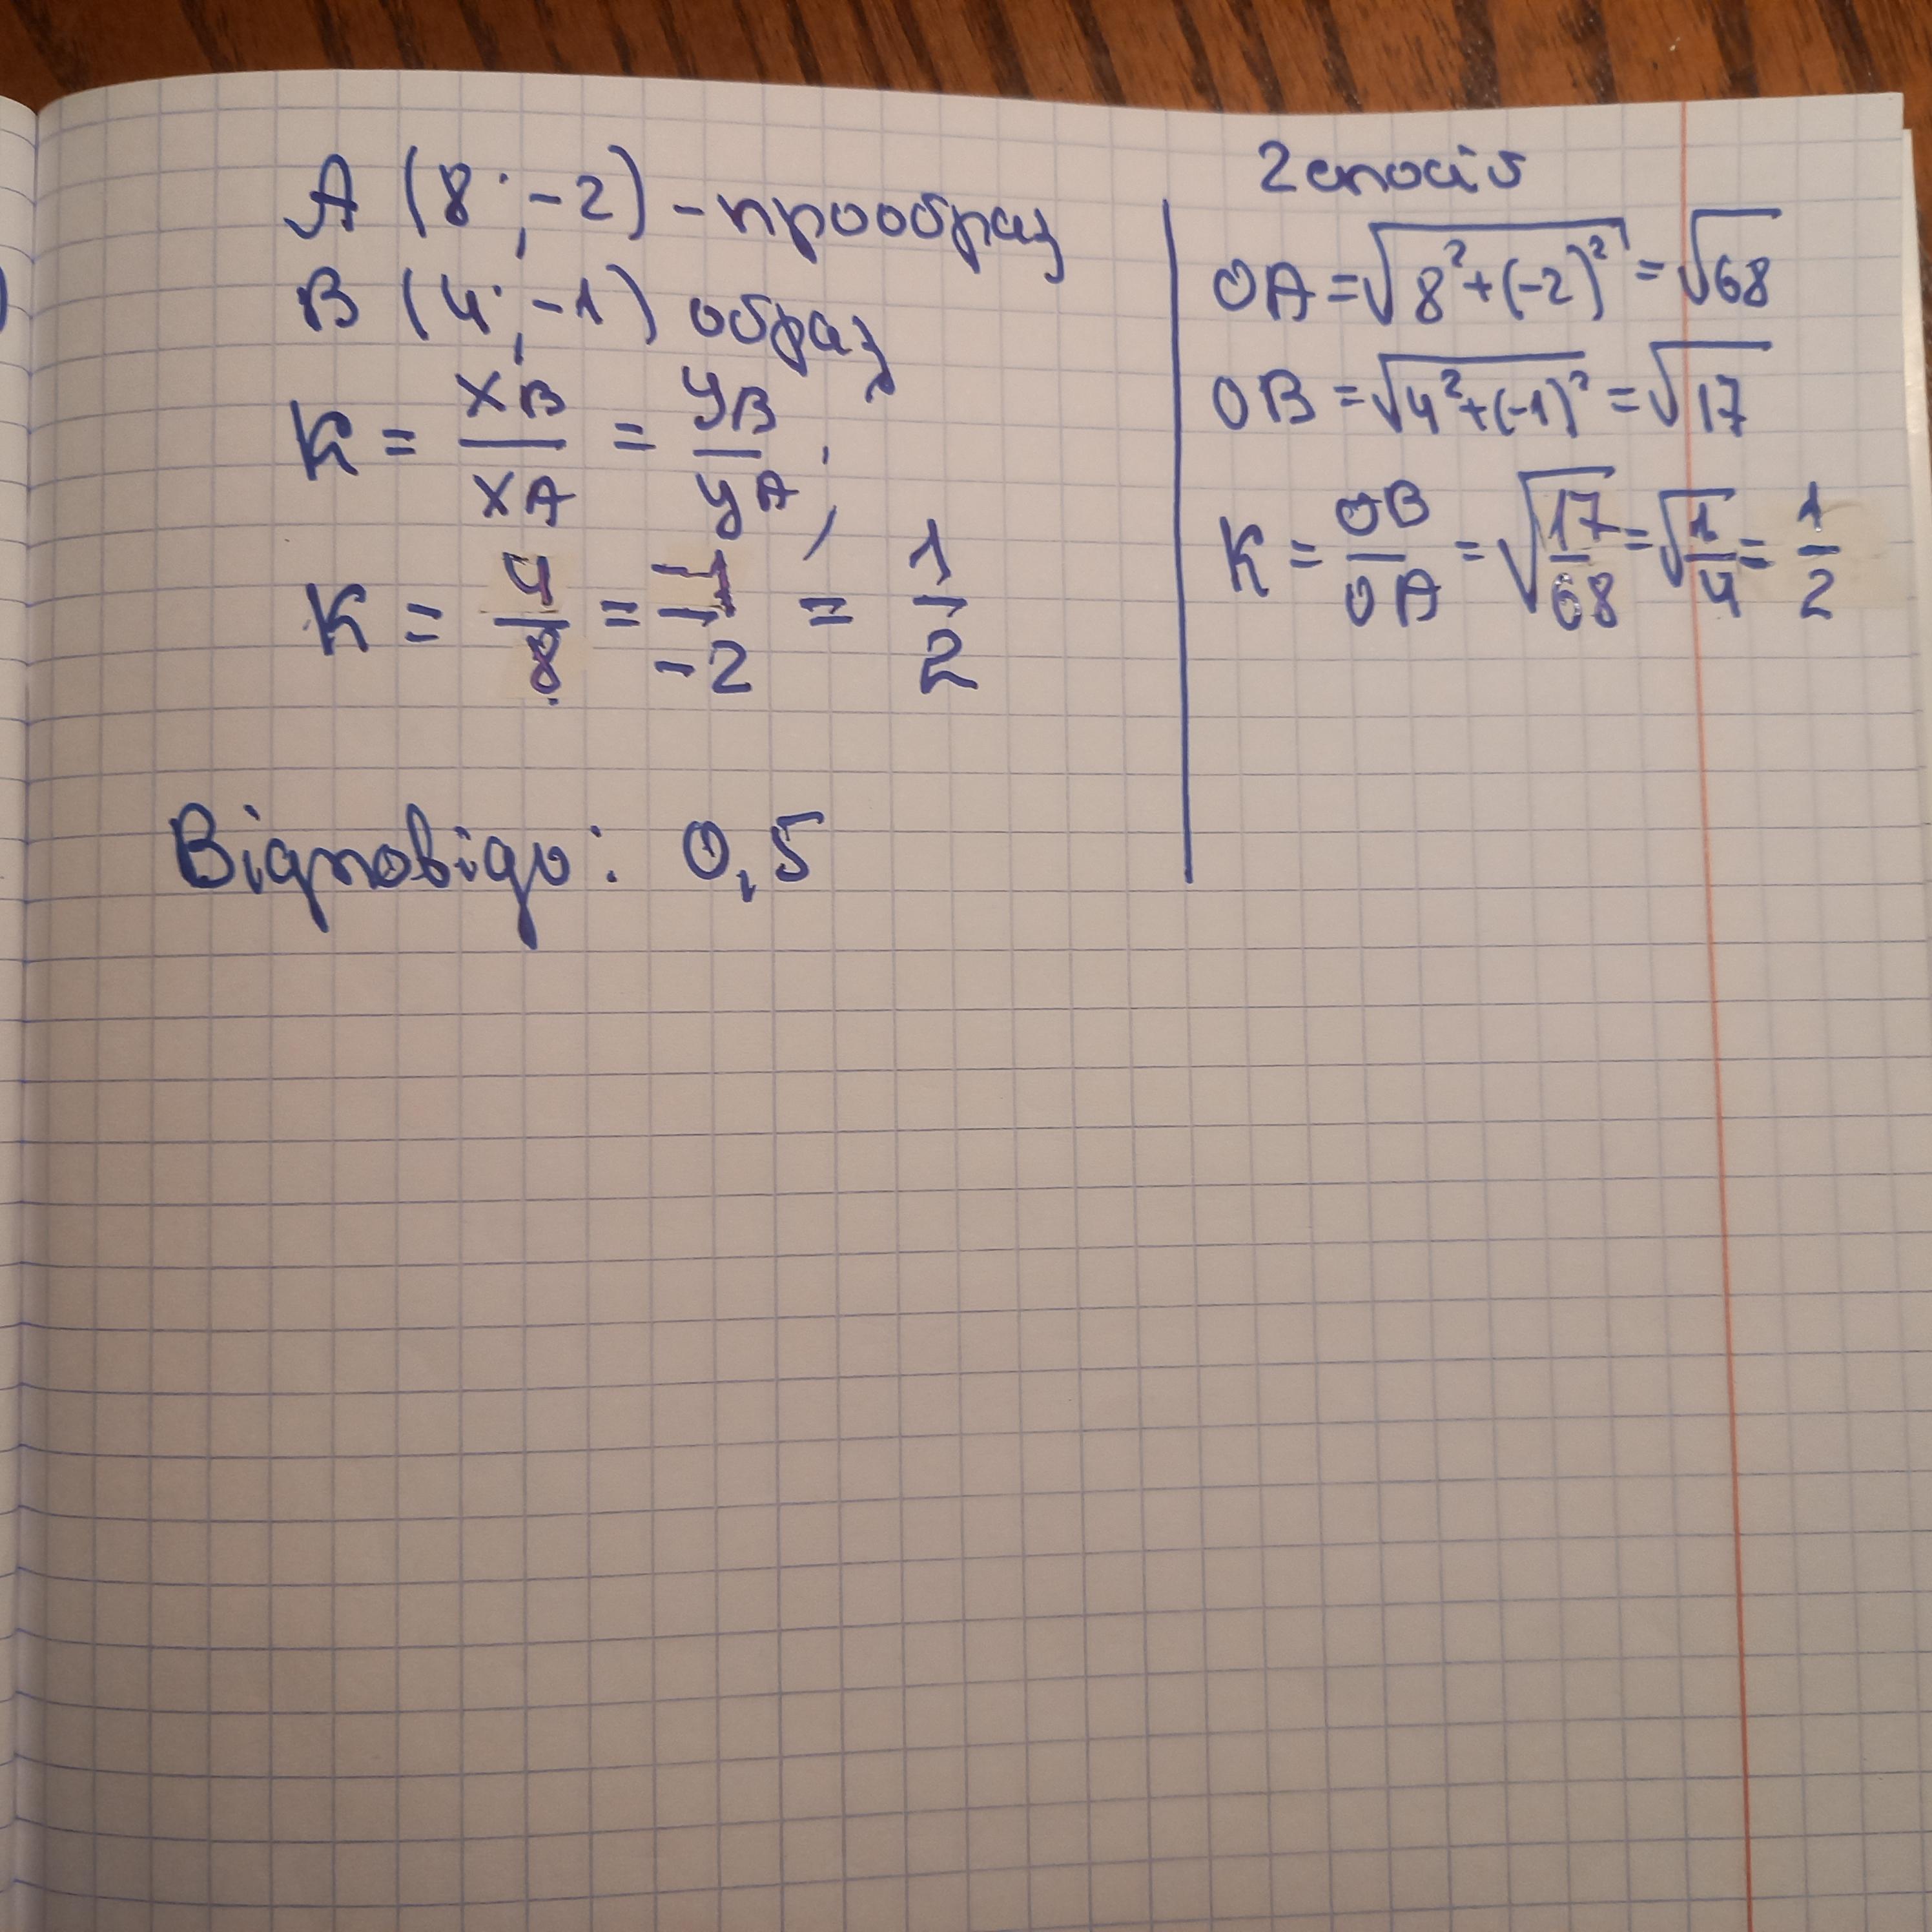 A (8 ; -2) - прообраз
B (4 ; -1) образ
K = xB/xA = yB/yA ;
K = 4/8 = -1/-2 = 1/2
Відповідь: 0,5
2 спосіб
OA = √(8² + (-2)²) = √68
OB = √(4² + (-1)²) = √17
K = OB/OA = √(17/68) = √(1/4) = 1/2